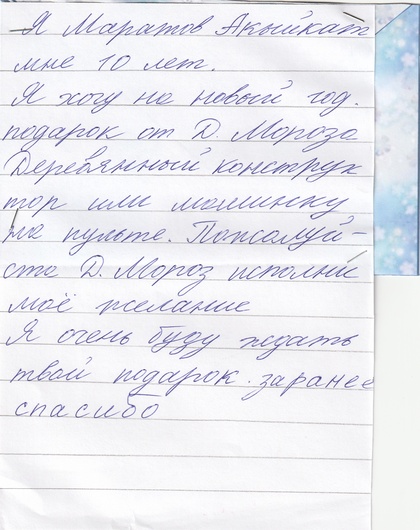 Я Маратов Акыйкат
мне 10 лет.
Я хочу на новый год.
подарок от Д. Мороза
Деревянный конструк
тор или машинку
на пульте. Пожалуй-
ста Д. Мороз исполни
моё желание
Я очень буду ждать
твой подарок. заранее
спасибо